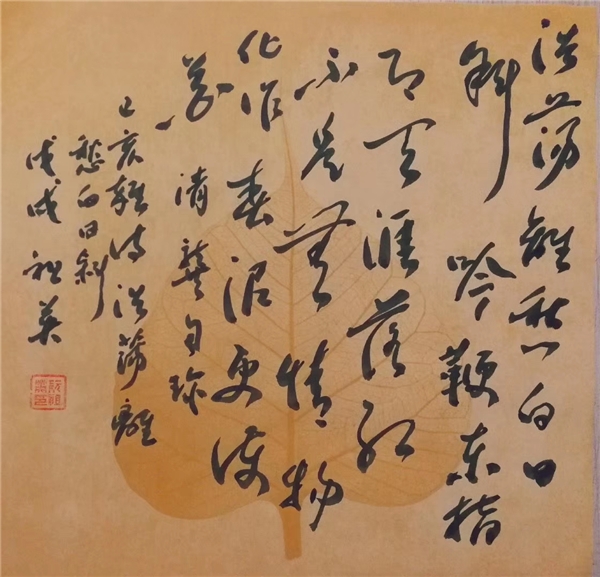 浩蕩離愁白日
斜吟鞭東指
即天涯落紅
不是無情物
化作春泥更護
花 清龔自珍
己亥雜詩浩蕩離
愁白日斜
戊戌祖英